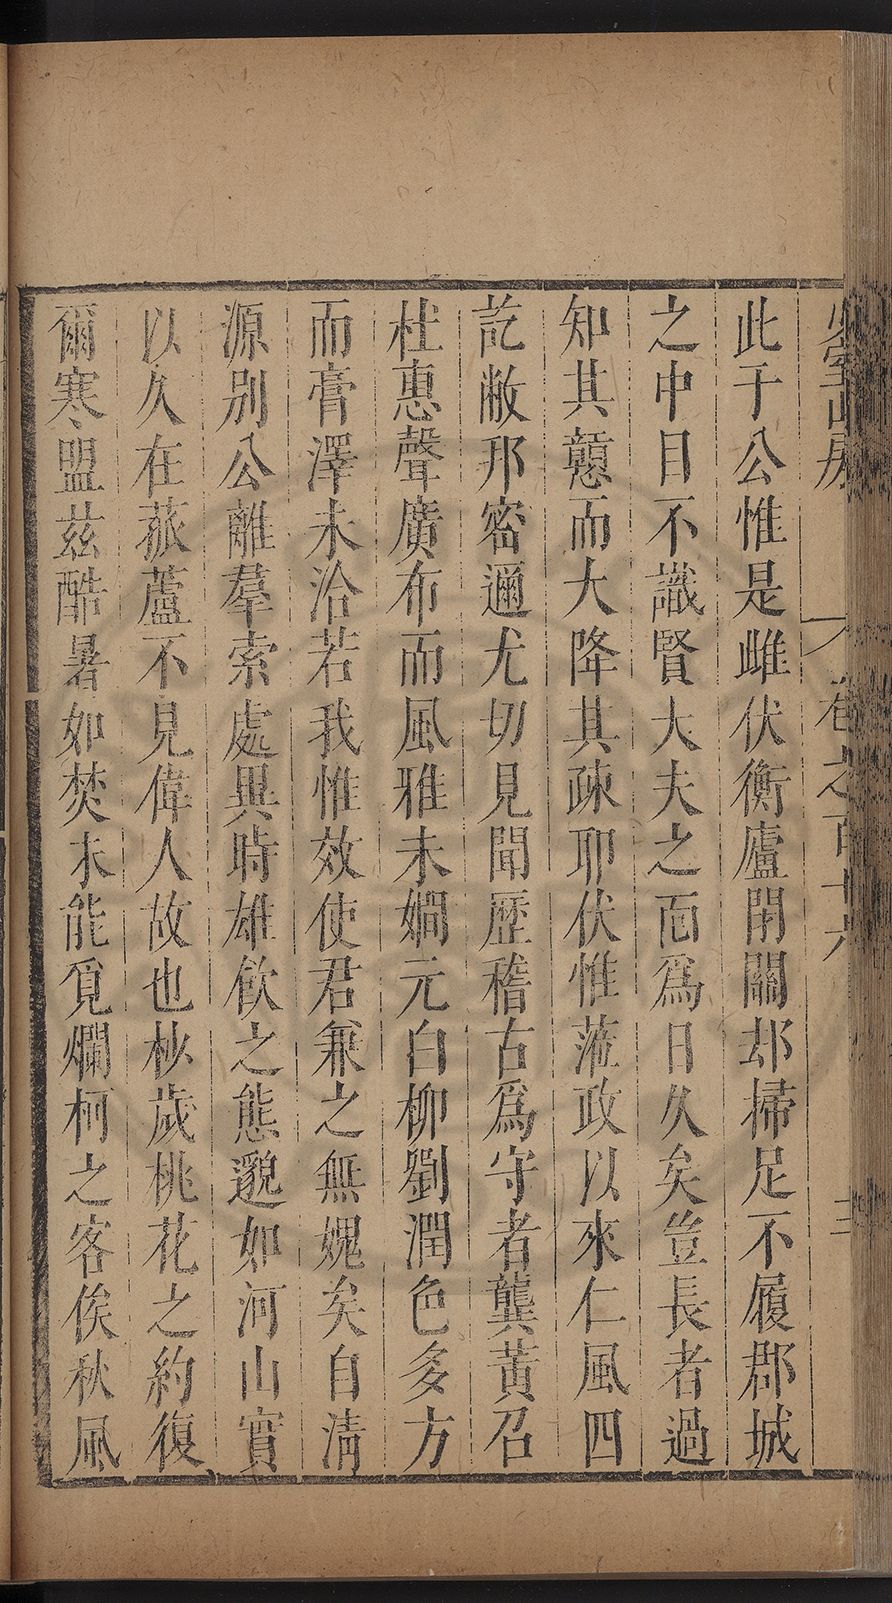 少室山房 卷之百十六 三
此于公惟是雌伏衡廬閉關却掃足不履郡城
之中目不識賢大夫之面爲日久矣豈長者過
知其戇而大降其疎耶伏惟蒞政以來仁風四
訖敝邦密邇尤切見聞歷稽古爲守者龔黃召
杜惠聲廣布而風雅未嫺元白柳劉潤色多方
而膏澤未洽若我惟效使君兼之無媿矣自清
源別公離羣索處異時雄飲之態邈如河山實
以久在菰蘆不見偉人故也杪歲桃花之約復
爾寒盟茲酷暑如焚未能覓爛柯之客俟秋風